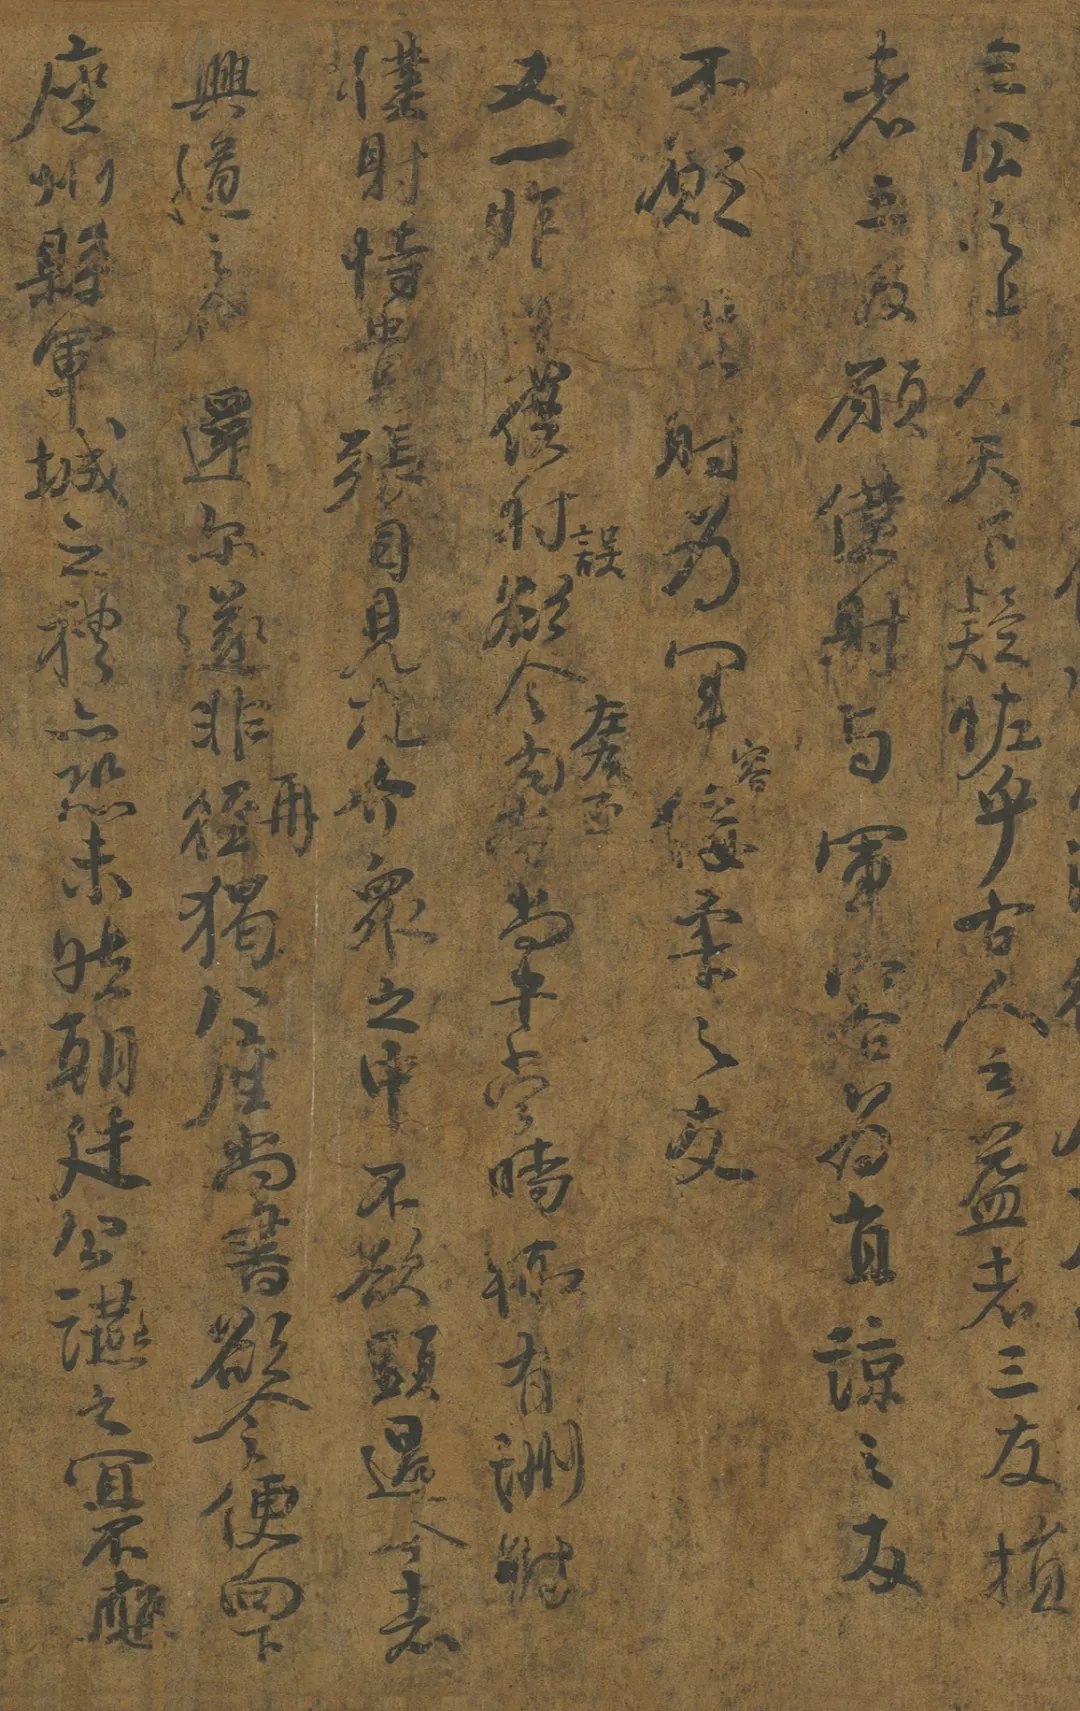 三公之上令天下疑怪乎古人云益者三友損
者三友願僕射與軍容為直諒之友
不願僕射為軍容佞柔之友
又一昨裴僕射誤欲令左右丞勾當尚書當時輒有酬對
僕射恃貴張目見尤介衆之中不欲顯過今者
興道之會還尓遂非再猲八座尚書欲令便向下
座州縣軍城之禮亦恐未然朝廷公讌之宜不應